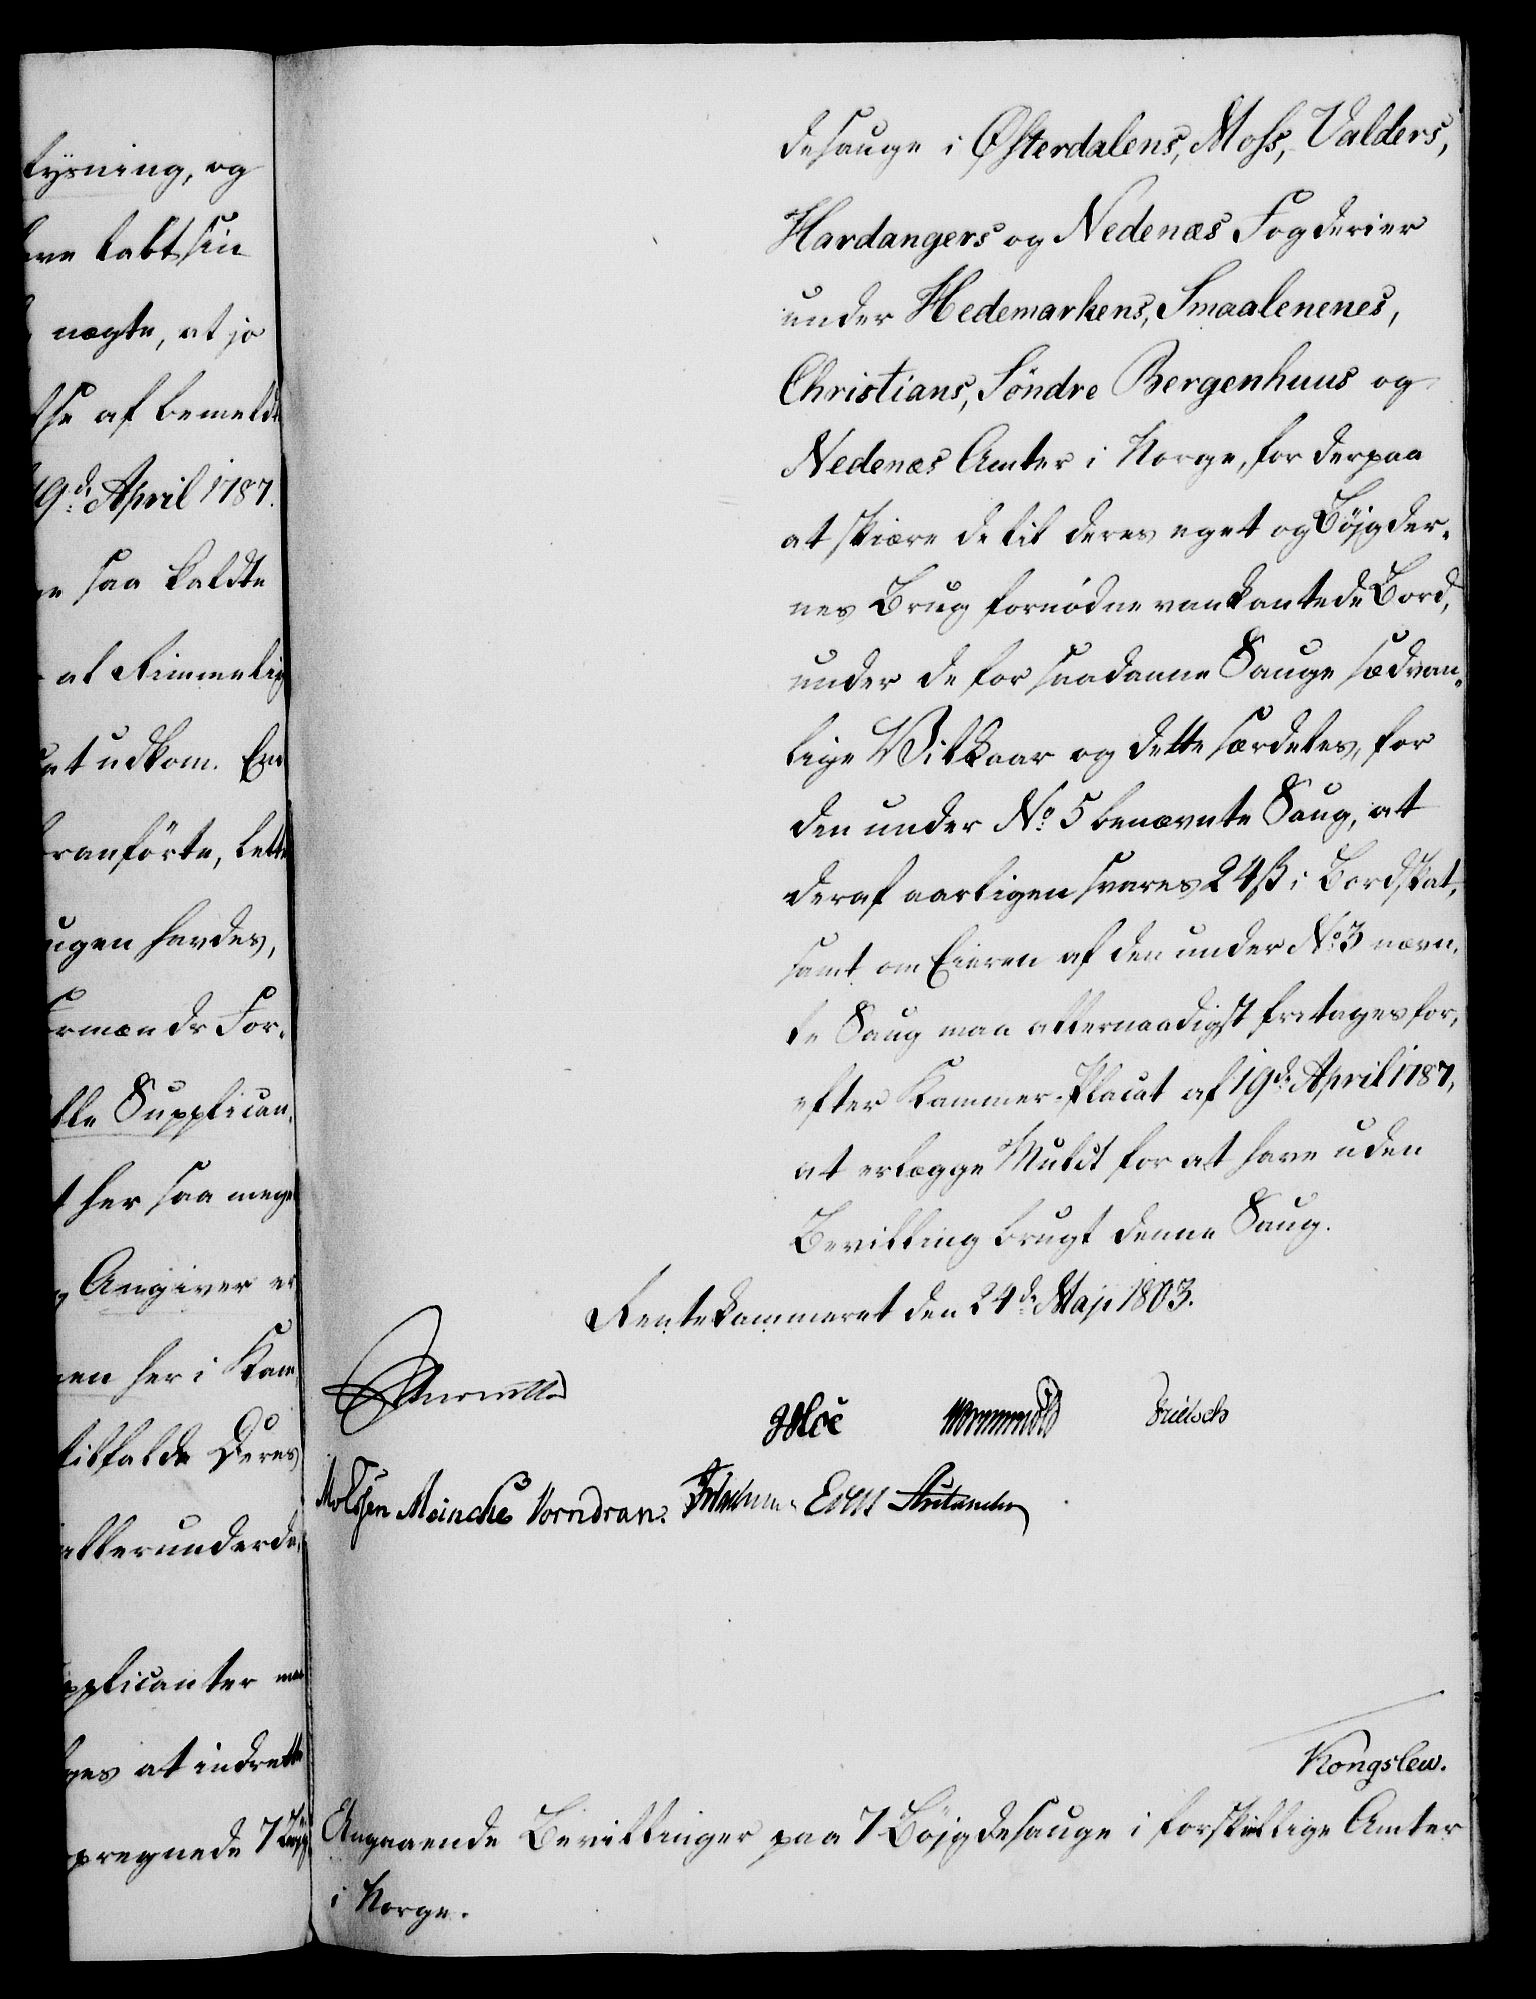 tysning, og
tabt sin
nægte, at jo
af bemeldte
19de April 1787.
saa kaldte
at Rimmelig
udkom. En
ranførte, lette
ugen havdes,
For-
Supplican-
her saa meget
Angiver er
her i Kam-
tilfalde Deres
allerunderda-
pplicanter maa
at indrette
pregnede 7 Bøjg-
desauge i Østerdalens, Moss, Valders,
Hardangers og Nedenæs Fogderier
under Hedemarkens, Smaalenenes,
Christians, Søndre Bergenhuus og
Nedenæs Amter i Norge, for derpaa
at skiære de til deres eget og Bøjgder-
nes Brug fornødne vankantede Bord,
under de for saadanne Sauge sædvan-
lige Vilkaar og dette særdeles, for
den under No. 5 benævnte Saug, at
deraf aarligen svares 24 ß i Bordskat,
samt om Eieren af den under No. 3 nævn-
te Saug maa allernaadigst fritages for,
efter Kammer-Placat af 19de April 1787,
at erlægge Mulct for at have uden
Bevilling brugt denne Saug.
Rentekammeret den 24de Maji 1803.
Moe Wormskiold Frietsch
Meincke Vorndran.
Kongslew.
Angaaende Bevillinger paa 7 Bøjgdesauge i forskiellige Amter
i Norge.